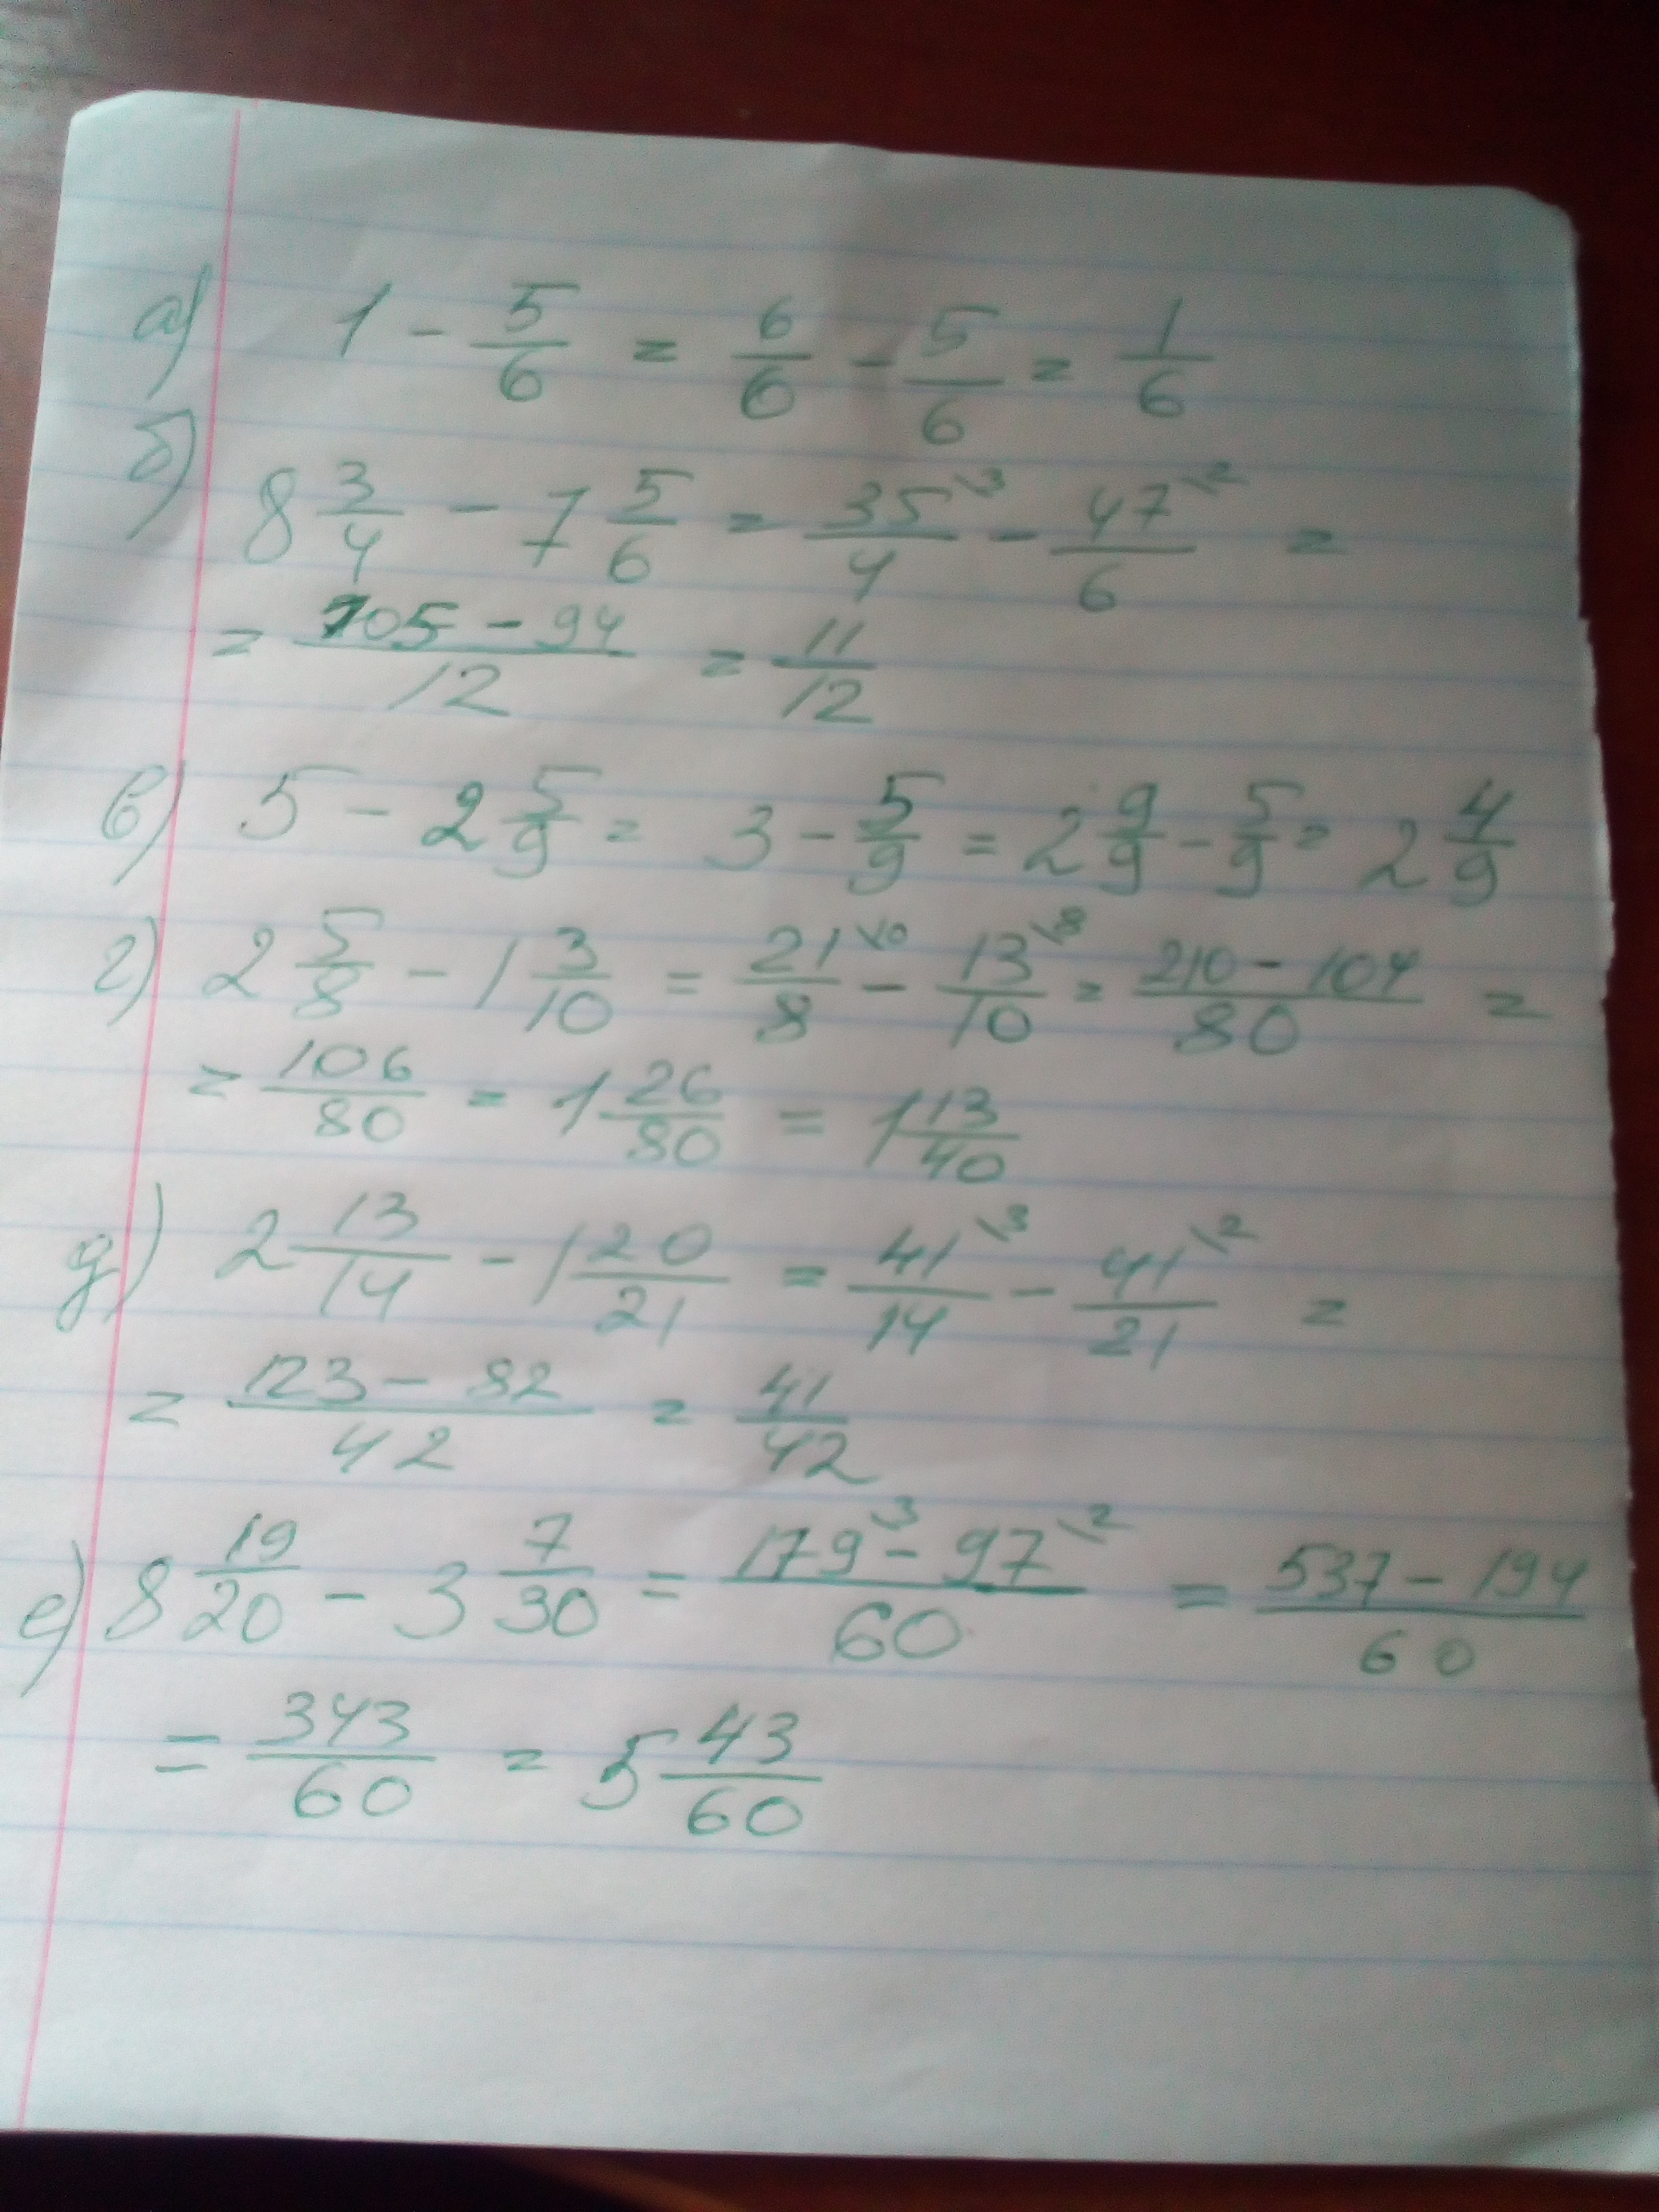 а) 1 - 5/6 = 6/6 - 5/6 = 1/6
б) 8 3/4 - 7 5/6 = 35\3/4 - 47\2/6 =
= 105 - 94/12 = 11/12
в) 5 - 2 5/9 = 3 - 5/9 = 2 9/9 - 5/9 = 2 4/9
г) 2 5/8 - 1 3/10 = 21\10/8 - 13\8/10 = 210 - 104/80 =
= 106/80 = 1 26/80 = 1 13/40
д) 2 13/14 - 1 20/21 = 41\3/14 - 41\2/21 =
= 123 - 82/42 = 41/42
е) 8 19/20 - 3 7/30 = 179\3 - 97\2/60 = 537 - 194/60
= 343/60 = 5 43/60